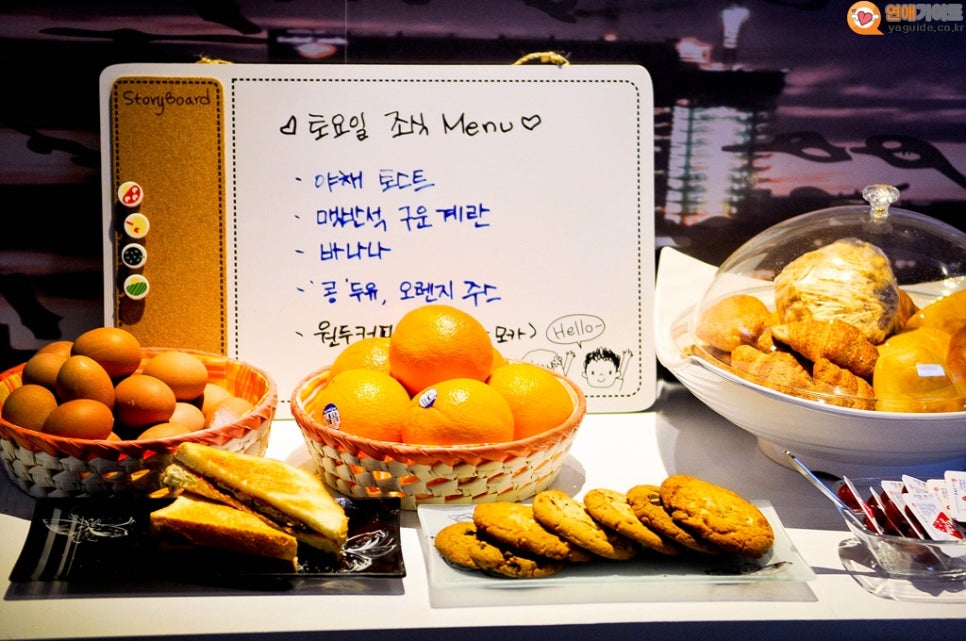 연애가이드
yaguide.co.kr
StoryBoard
♡ 토요일 조식 Menu ♡
- 야채 토스트
- 맥반석 구운 계란
- 바나나
- '콩'두유, 오렌지 주스
- 원두커피 모카)
Hello~